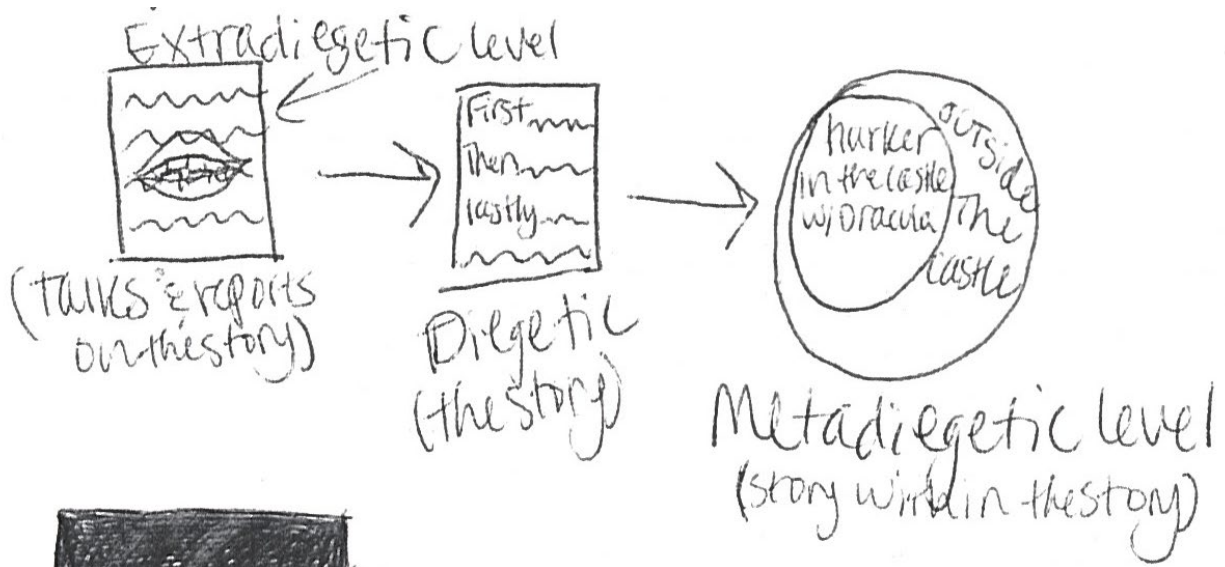 Extradiegetic level
(talks & reports
on the story)
First
Then
lastly
Diegetic
(the story)
harker
in the castle
w/Dracula
outside
The
castle
Metadiegetic level
(story within the story)